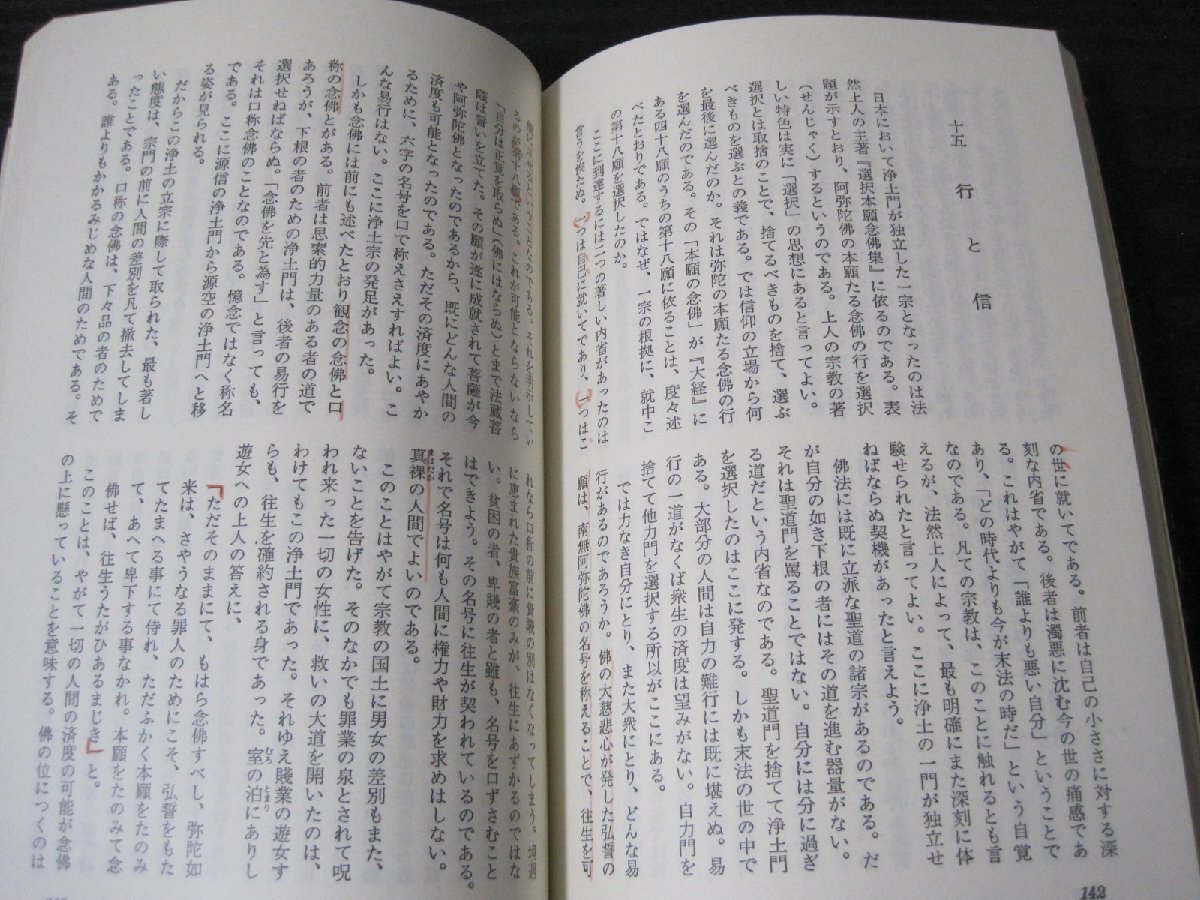 十五 行と信
日本において浄土門が独立した一宗となったのは法
然上人の主著『選択本願念佛集』に依るのである。表
題が示すとおり、阿弥陀佛の本願たる念佛の行を選択
(せんじゃく)するというのである。上人の宗教の著
しい特色は実に「選択」の思想にあると言ってよい。
選択とは取捨のことで、捨てるべきものを捨て、選ぶ
べきものを選ぶとの義である。では信仰の立場から何
を最後に選んだのか。それは弥陀の本願たる念佛の行
を選んだのである。その「本願の念佛」が『大経』に
ある四十八願のうちの第十八願に依ることは、度々述
べたとおりである。ではなぜ、一宗の根拠に、就中こ
の第十八願を選択したのか。
ここに到達するには二つの著しい内省があったのは
言うを俟たぬ。一つは自己に就いてであり、一つはこ
の世に就いてである。前者は自己の小ささに対する深
刻な内省である。後者は濁悪に沈む今の世の痛感であ
る。これはやがて「誰よりも悪い自分」ということで
あり、「どの時代よりも今が末法の時だ」という自覚
なのである。凡ての宗教は、このことに触れるとも言
えるが、法然上人によって、最も明確にまた深刻に体
験せられたと言ってよい。ここに浄土の一門が独立せ
ねばならぬ契機があったと言えよう。
佛法には既に立派な聖道の諸宗があるのである。だ
が自分の如き下根の者にはその道を進む器量がない。
それは聖道門を罵ることではない。自分には分に過ぎ
る道だという内省なのである。聖道門を捨てて浄土門
を選択したのはここに発する。しかも末法の世の中で
ある。大部分の人間は自力の難行には既に堪えぬ。易
行の一道がなくば衆生の済度は望みがない。自力門を
捨てて他力門を選択する所以がここにある。
では力なき自分にとり、また大衆にとり、どんな易
行があるのであろうか。佛の大慈悲心が発した弘誓の
願は、南無阿弥陀佛の名号を称えることで、往生を可
142
「自分は正覚を取らぬ」(佛にはならぬ)とまで法蔵菩
薩は誓いを立てた。その願が遂に成就されて菩薩が今
や阿弥陀佛となったのであるから、既にどんな人間の
済度も可能となったのである。ただその済度にあやか
るために、六字の名号を口で称えさえすればよい。こ
んな易行はない。ここに浄土宗の発足があった。
しかも念佛には前にも述べたとおり観念の念佛と口
称の念佛とがある。前者は思索的力量のある者の道で
あろうが、下根の者のための浄土門は、後者の易行を
選択せねばならぬ。「念佛を先と為す」と言っても、
それは口称念佛のことなのである。憶念ではなく称名
である。ここに源信の浄土門から源空の浄土門へと移
る姿が見られる。
だからこの浄土の立宗に際して取られた、最も著し
い態度は、宗門の前に人間の差別を凡て撤去してしま
ったことである。口称の念佛は、下々品の者のためで
ある。誰よりもかかるみじめな人間のためである。そ
れなら口称の前に貴賤の別はなくなってしまう。境遇
に恵まれた貴族富豪のみが、往生にあずかるのではな
い。貧困の者、卑賤の者と雖も、名号を口ずさむこと
はできよう。その名号に往生が契われているのである。
それで名号は何も人間に権力や財力を求めはしない。
真裸の人間でよいのである。
まはだか
このことはやがて宗教の国土に男女の差別もまた、
ないことを告げた。そのなかでも罪業の泉とされて呪
われ来った一切の女性に、救いの大道を開いたのは、
わけてもこの浄土門であった。それゆえ賤業の遊女す
らも、往生を確約される身であった。室の泊にありし
むろ とまり
遊女への上人の答えに、
「ただそのままにて、もはら念佛すべし、弥陀如
来は、さやうなる罪人のためにこそ、弘誓をもた
てたまへる事にて侍れ、ただふかく本願をたのみ
て、あへて卑下する事なかれ。本願をたのみて念
佛せば、往生うたがひあるまじき」と。
このことは、やがて一切の人間の済度の可能が念佛
の上に懸っていることを意味する。佛の位につくのは